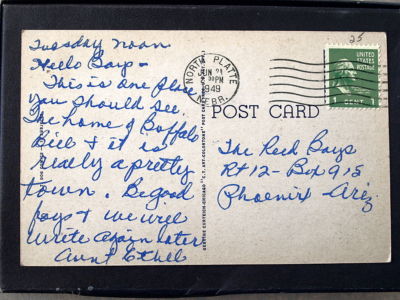 25
Tuesday noon
Hello Boys -
This is one Place
you should see.
The home of Buffalo
Bill & it is
really a pretty
town. Be good
boys & we will
write again later
Aunt Ethel
NORTH PLATTE
JUN 21
PM
1949
NEBR.
UNITED
STATES
POSTAGE
1 CENT 1
POST CARD
The Reed Boys
Rt 12 - Box 915
Phoenix Ariz.
CURTEICH-CHICAGO "C.T. ART-COLORTONE" POST CARD